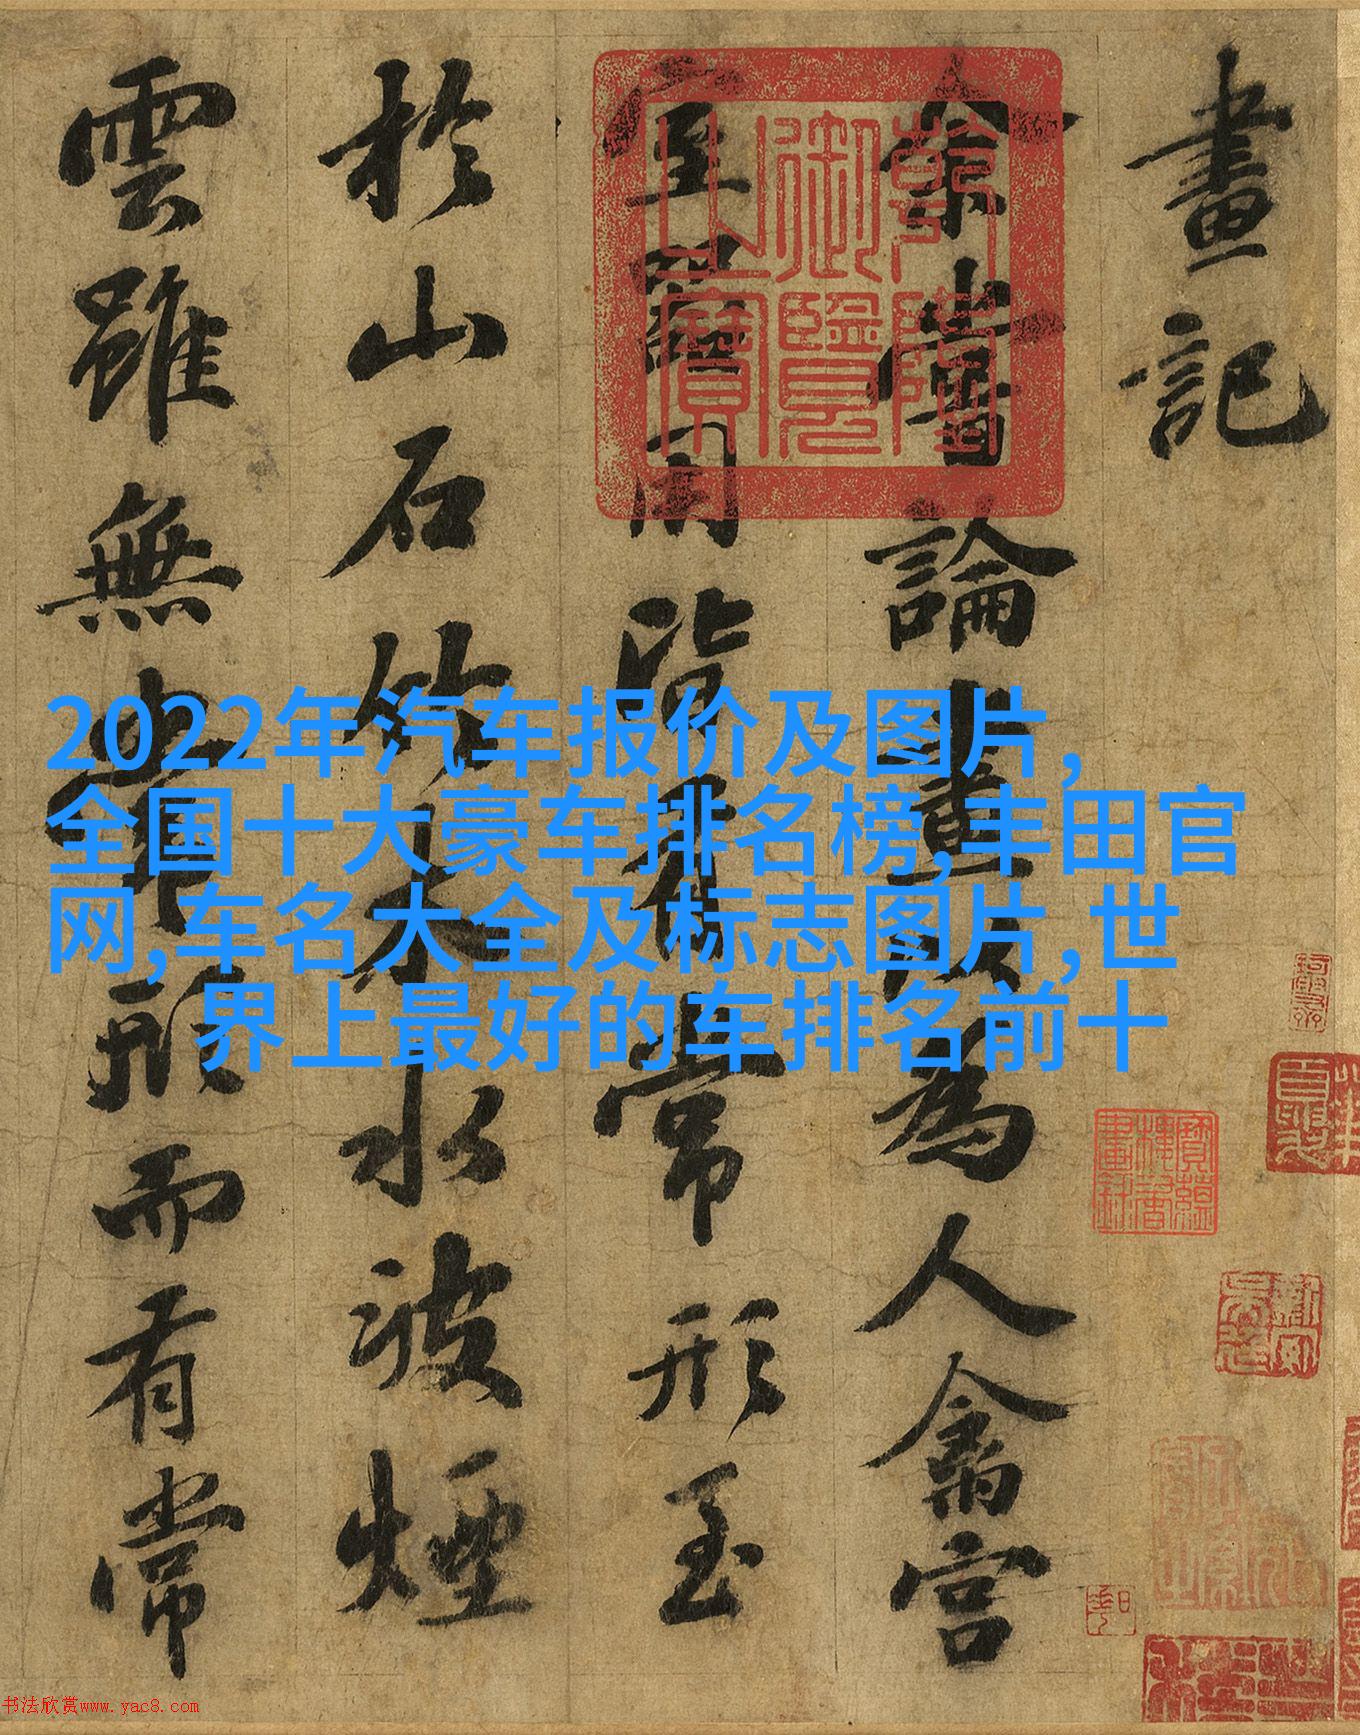 畫記
余嘗論畫以為人禽宮
室器用皆有常形至
於山石竹木水波煙
雲雖無常形而有常
乾隆御覽之寶
2022年汽车报价及图片,
全国十大豪车排名榜,丰田官
网,车名大全及标志图片,世
界上最好的车排名前十
书法欣赏www.yac8.com